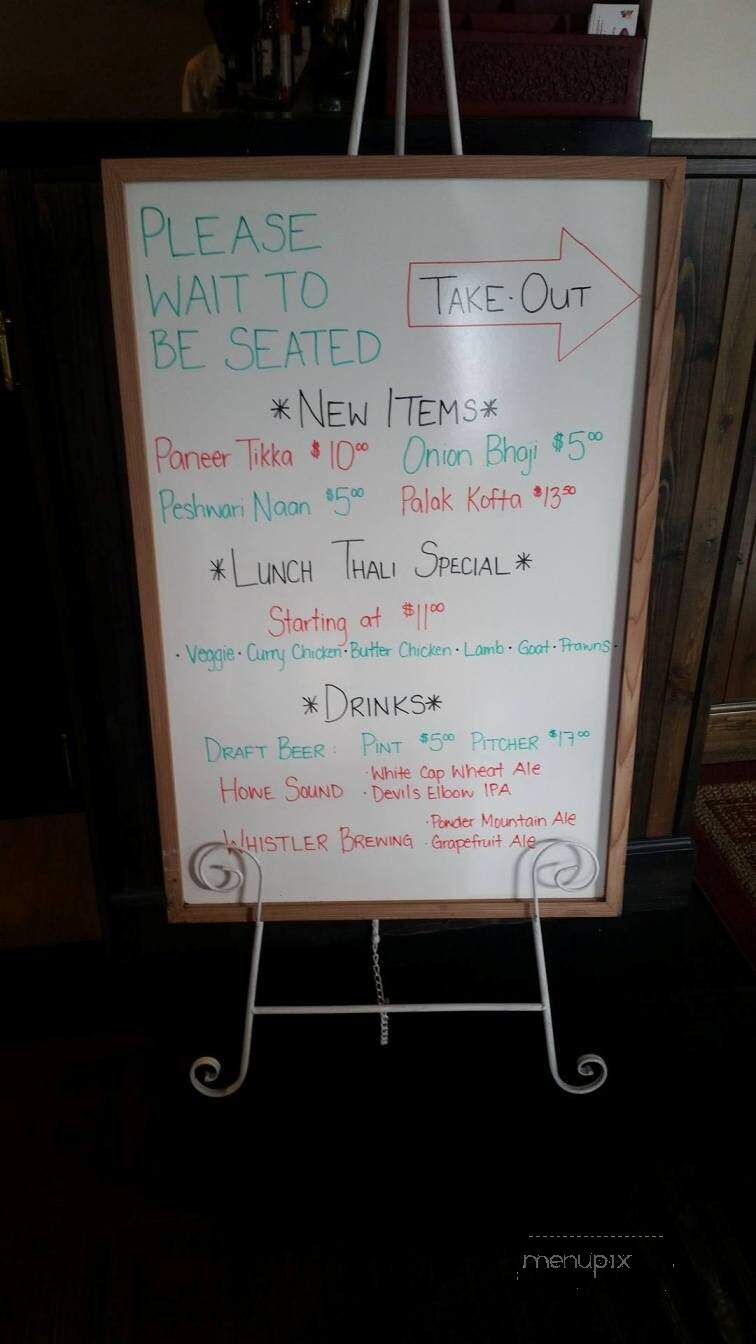 PLEASE
WAIT TO
BE SEATED
TAKE-OUT
*NEW ITEMS*
Paneer Tikka $10.00 Onion Bhaji $5.00
Peshwari Naan $5.00 Palak Kofta $13.50
*LUNCH THALI SPECIAL*
Starting at $11.00
· Veggie · Curry Chicken · Butter Chicken · Lamb · Goat · Prawns ·
*DRINKS*
DRAFT BEER: PINT $5.00 PITCHER $17.00
HOWE SOUND · White Cap Wheat Ale
· Devil's Elbow IPA
· Powder Mountain Ale
WHISTLER BREWING · Grapefruit Ale
menupix